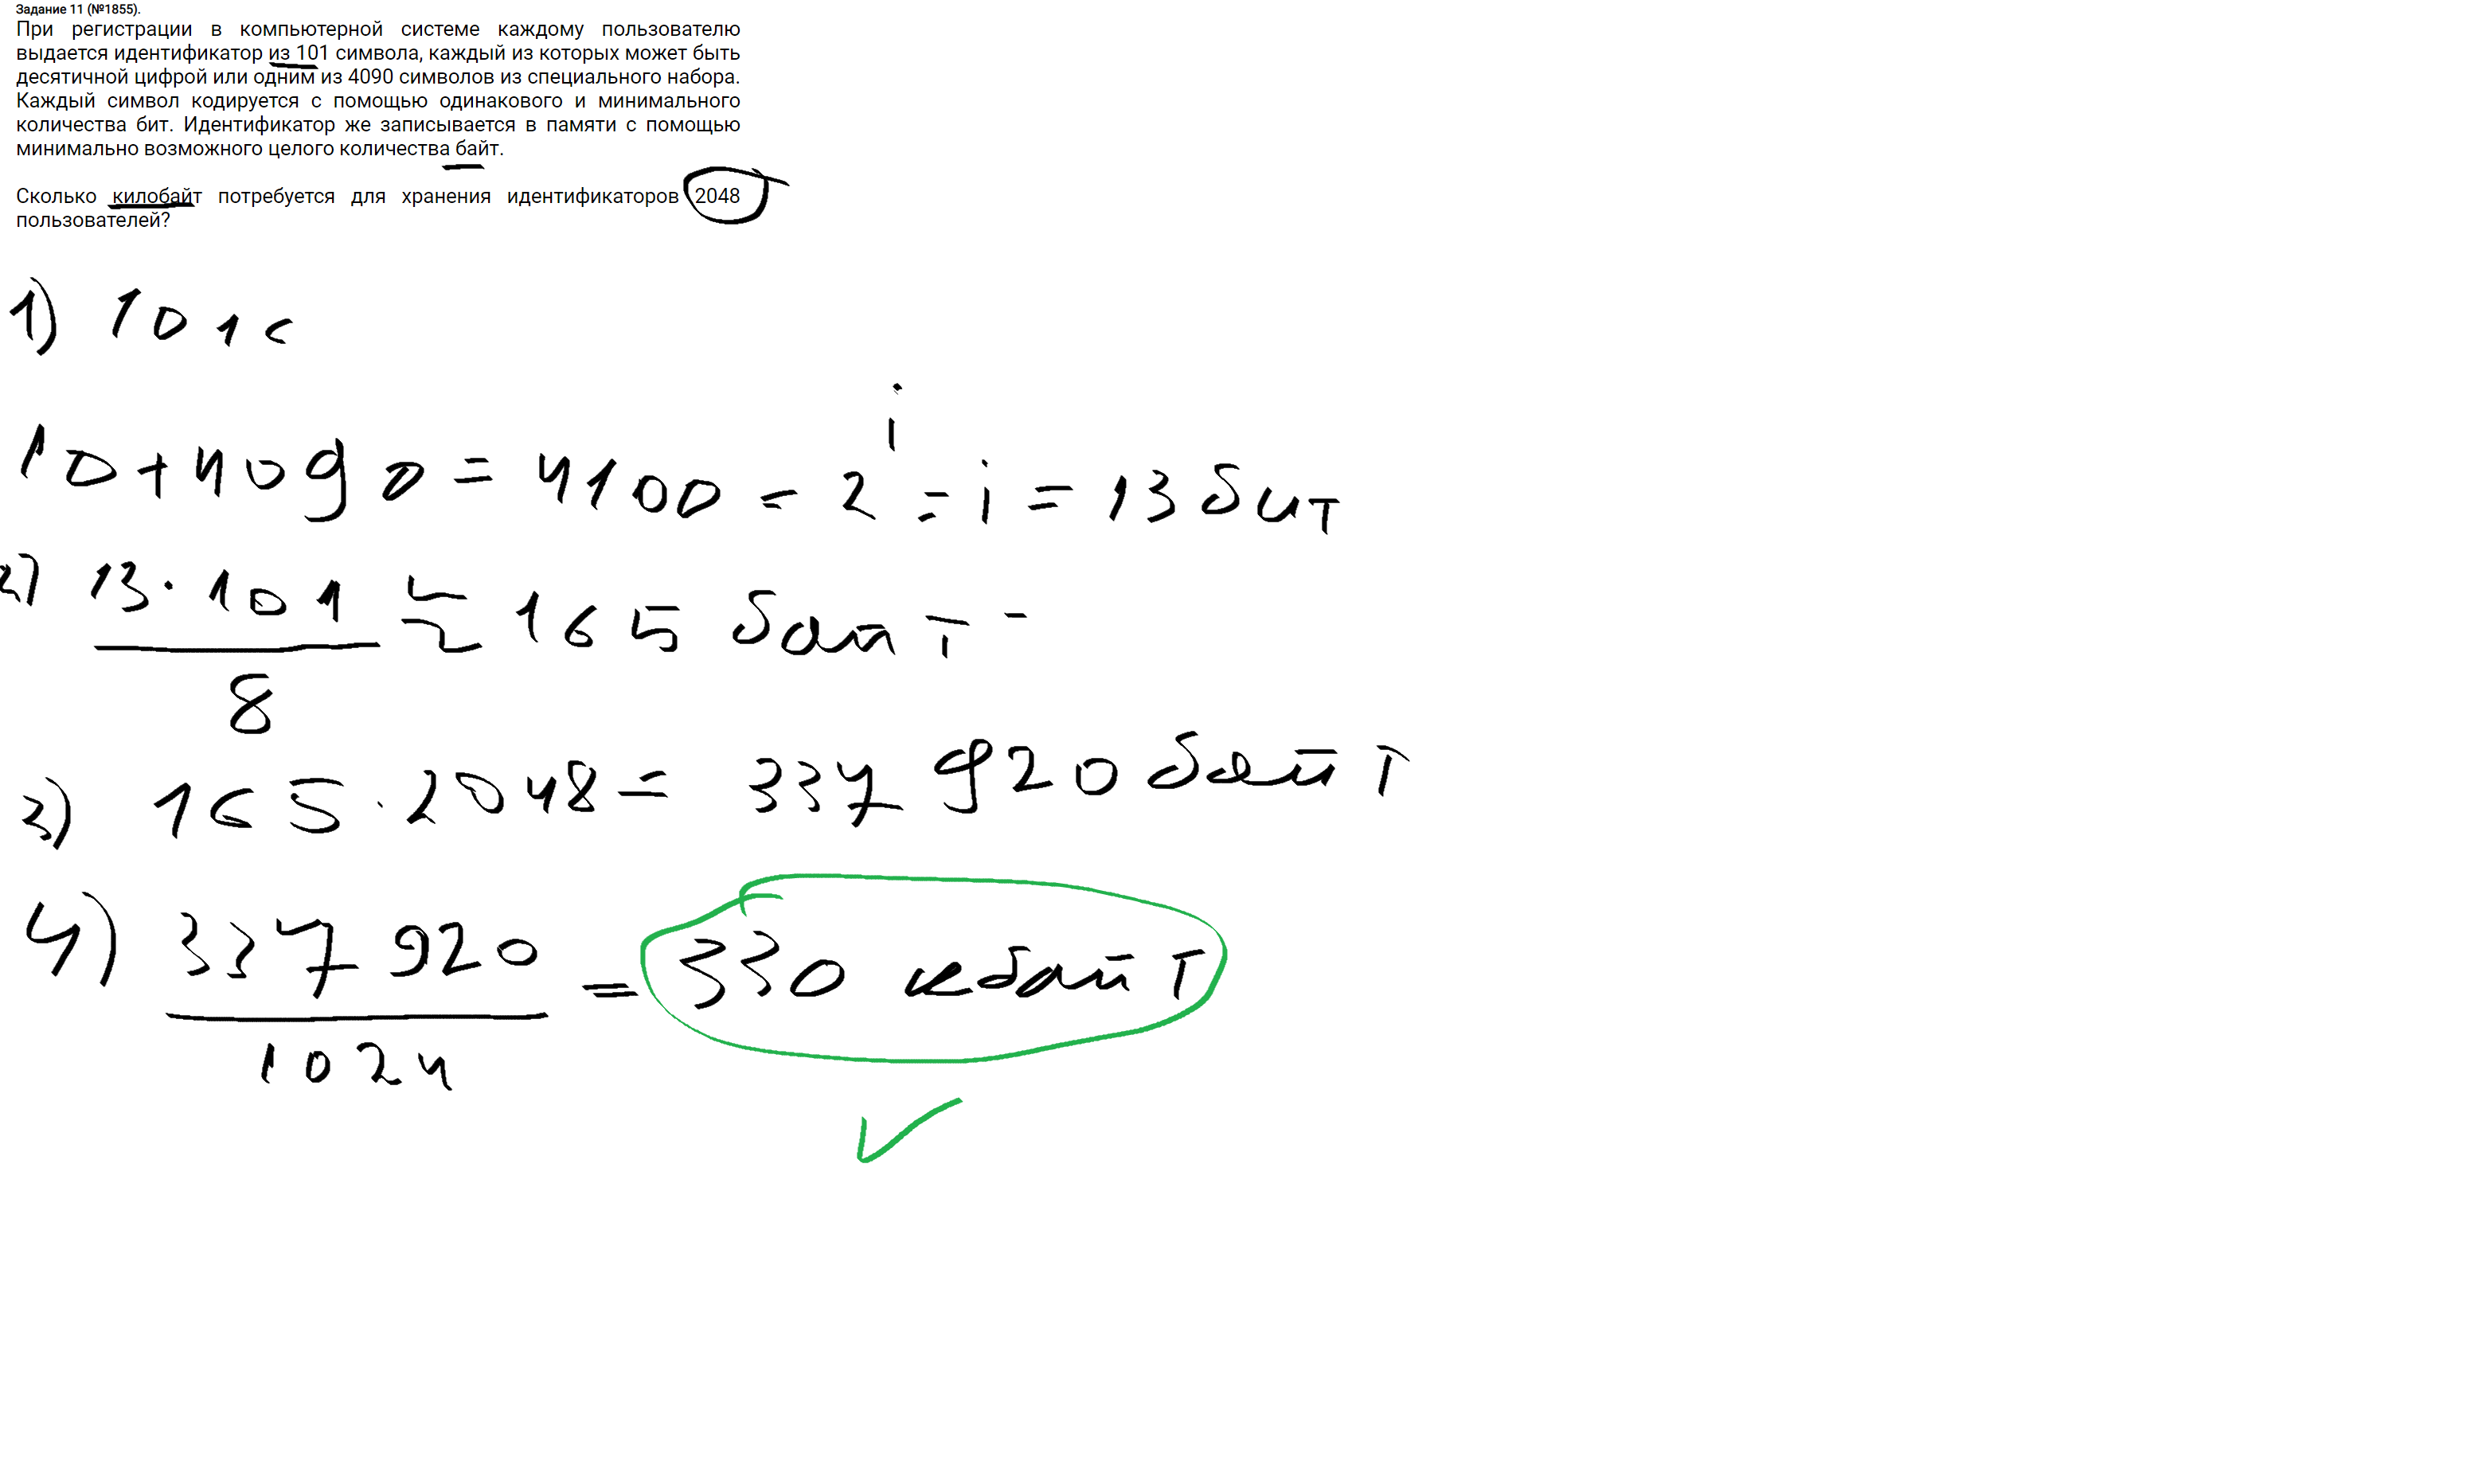 Задание 11 (№1855).
При регистрации в компьютерной системе каждому пользователю
выдается идентификатор из 101 символа, каждый из которых может быть
десятичной цифрой или одним из 4090 символов из специального набора.
Каждый символ кодируется с помощью одинакового и минимального
количества бит. Идентификатор же записывается в памяти с помощью
минимально возможного целого количества байт.
Сколько килобайт потребуется для хранения идентификаторов 2048
пользователей?
1) 101 с
10+4090 = 4100 = 2^i = i = 13 бит
2) 13 · 101
8
≈ 165 байт -
3) 165 · 2048 = 337 920 байт
4) 337 920
1024
= 330 кбайт